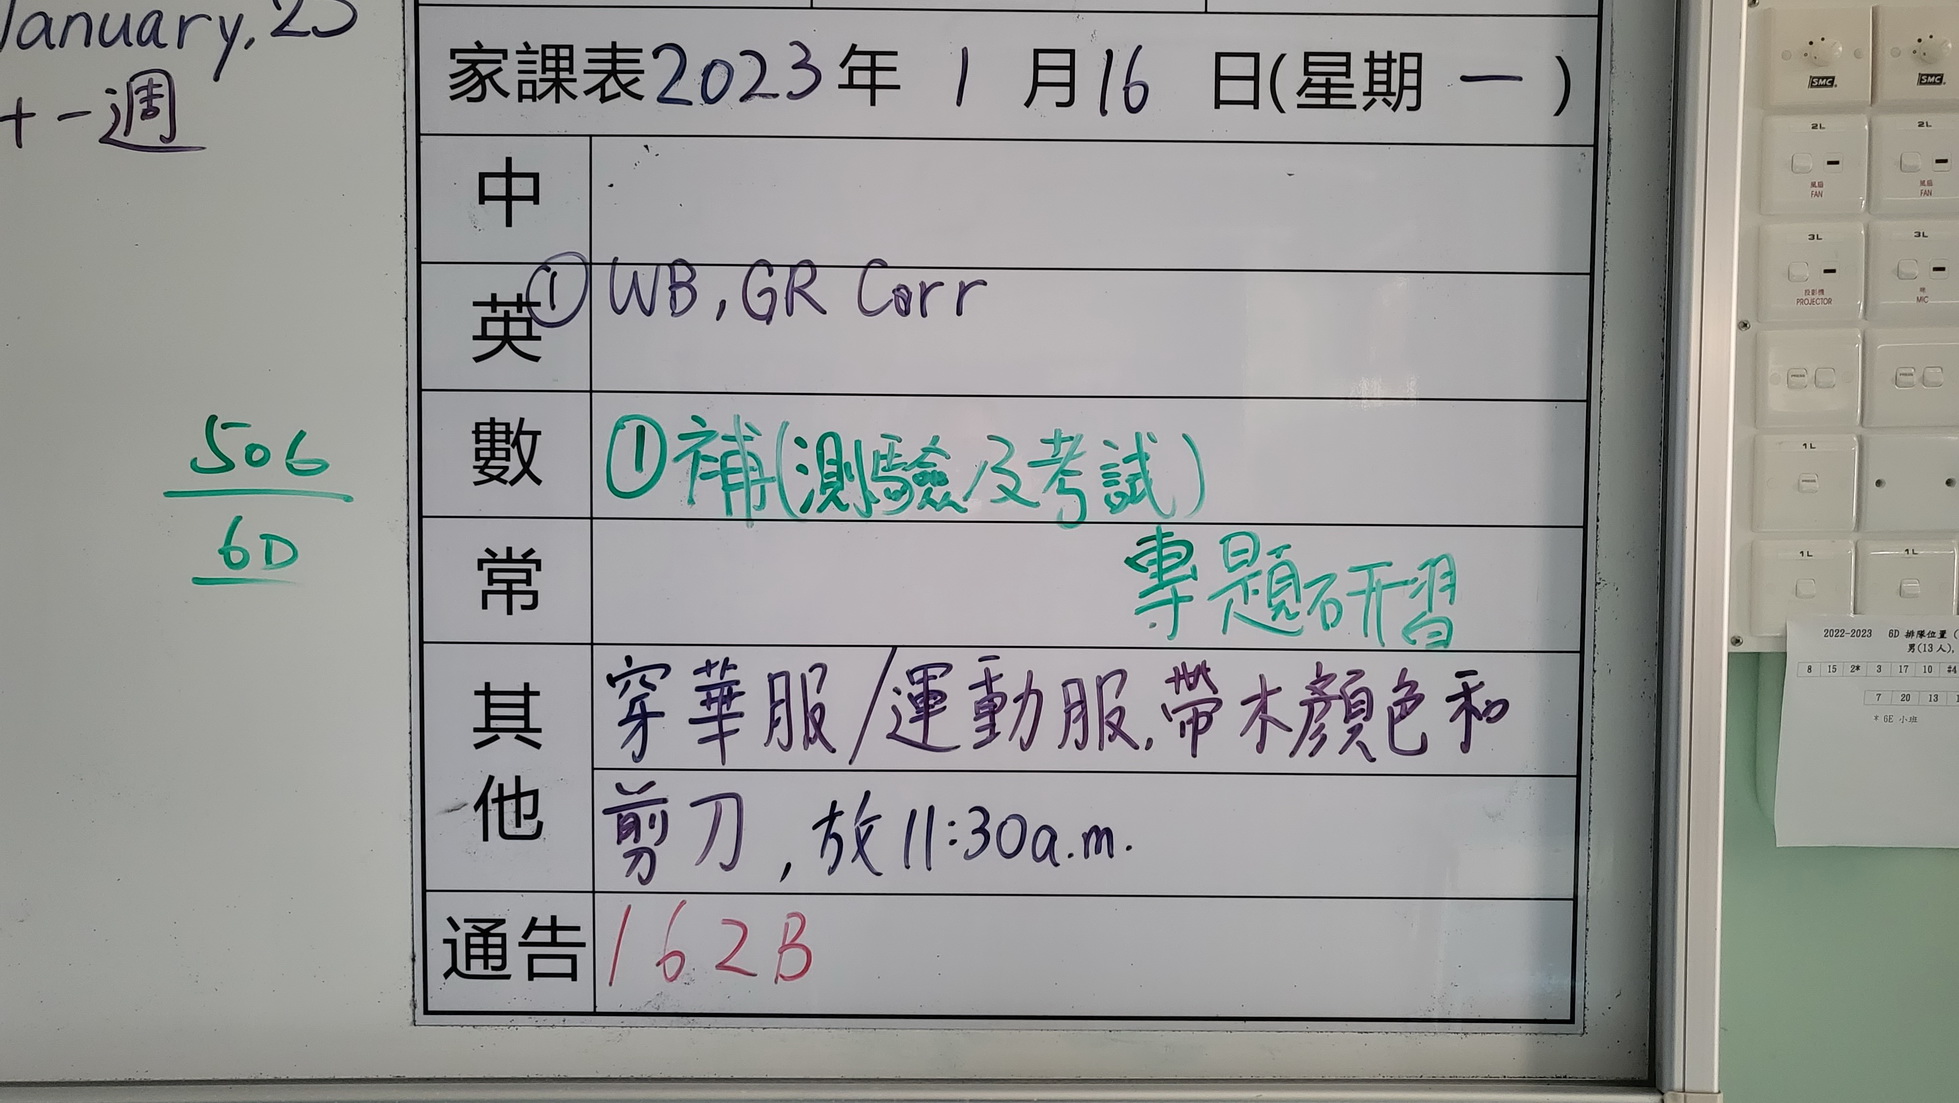 January, 23
十一週
家課表2023年 1 月16 日(星期 一 )
中
英 ① WB, GR Corr
數 ①補(測驗及考試)
常 專題研習
其他 穿華服/運動服.帶木顏色和
剪刀, 放11:30a.m.
通告 162B
506
6D
SMC
SMC
2L
2L
風扇
FAN
風扇
FAN
3L
3L
投影機
PROJECTOR
MIC
PRESS
PRESS
1L
1L
1L
2022-2023 6D 排隊位置 (
男(13人),
8 15 2* 3 17 10 #4
7 20 13
* 6E 小班